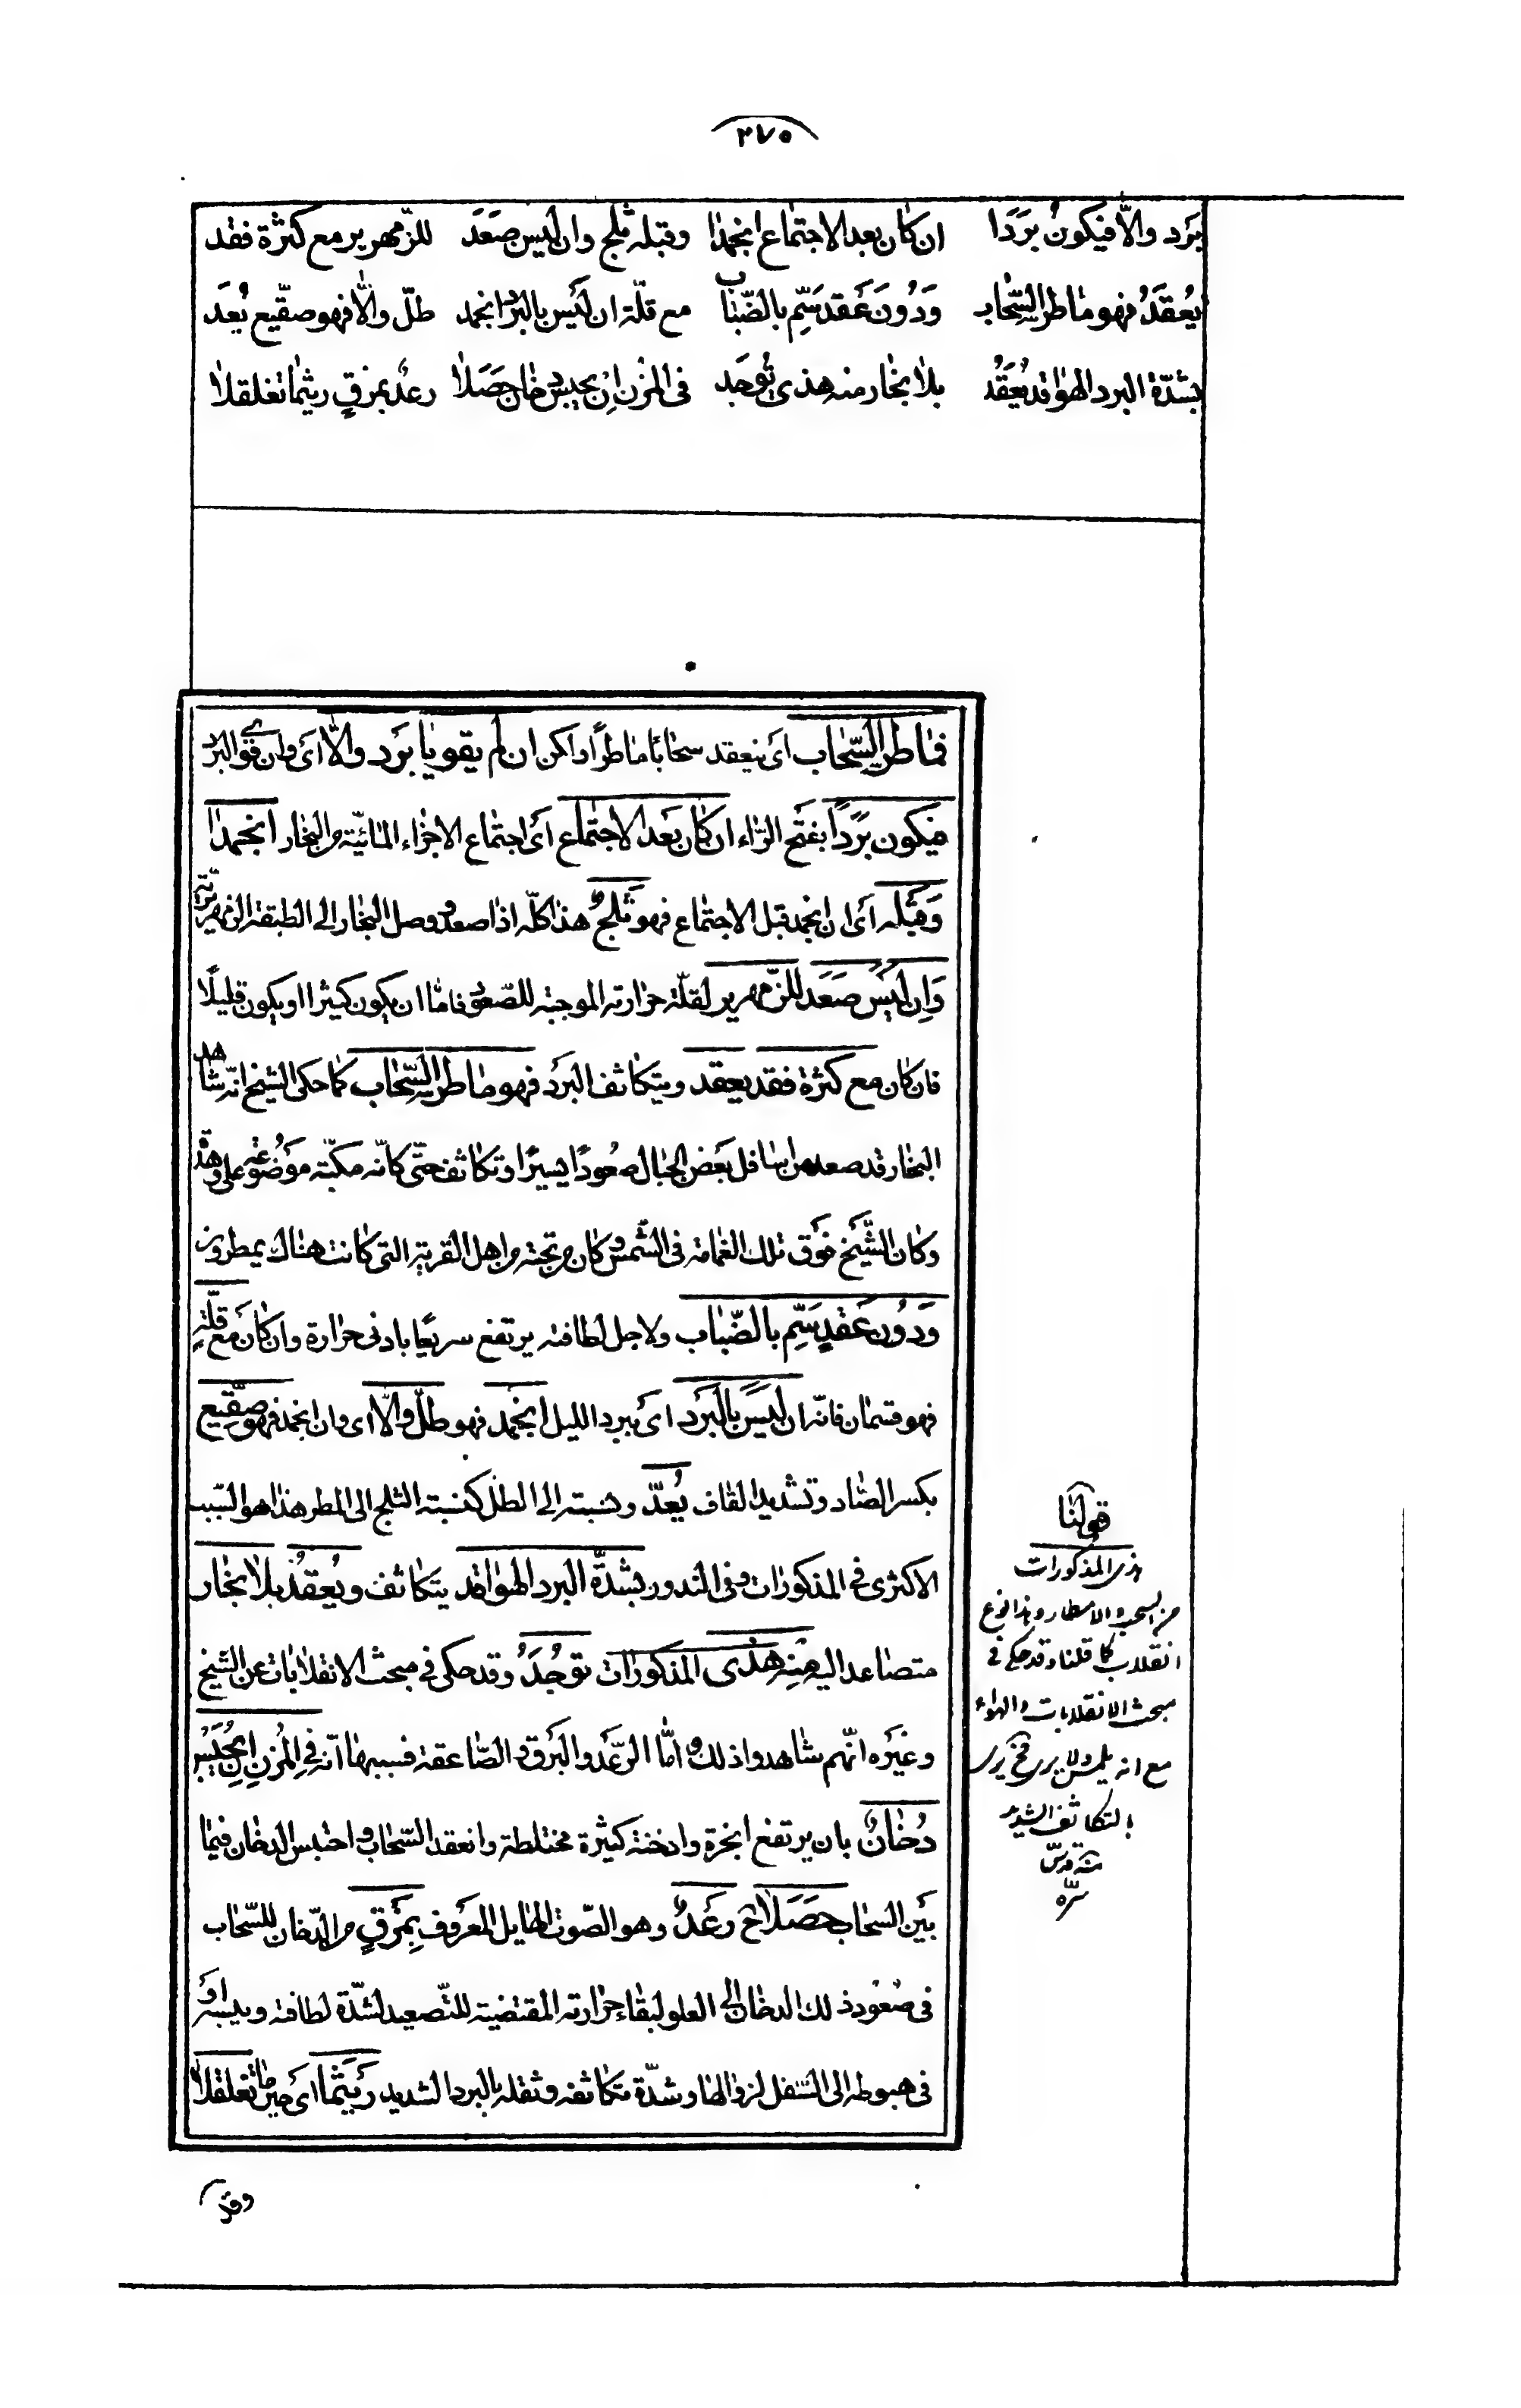 ٢٧٥
برد والّا فيكون بَرَدًا ان كان بعد الاجتماع انجمدا وقبله ثلج وان ليس صَعَدَ للزّمهرير مع كثرة فقد
يُعقَدُ فهو ماطر السّحاب وَدُونَ عَقد سَمِّ بالضّباب مع قلّة ان لَيس بالبرد انجمد طلّ والّا فهو صقّيع يُعَدّ
بشدّة البرد الهوا قد يُعقَدُ بلا بخار منه هذى تُوجَد فى المزن اِن يحبس دخان حَصَلا رعدٌ بمزقٍ ريثما تغلغلا
فماطر السّحاب اى ينعقد سحابًا ماطرًا ولكن ان لم يقو يا برد والّا اى وان قوى البرد
فيكون بَرَدًا بفتح الرّاء ان كان بعد الاجتماع اى اجتماع الاجزاء المائيّة من البخار انجمدا
وَقبله اى ان انجمد قبل الاجتماع فهو ثلجٌ هذا كلّه اذا صعد و وصل البخار الى الطبقة الزمهريريّة
وَاِن لَيس صَعَد للزّمهرير لقلّة حرارته الموجبة للصّعود فامّا ان يكون كثيرا او يكون قليلًا
فان كان مع كثرة فقد يعقد ويتكاثف البرد فهو ماطر السّحاب كما حكى الشيخ انّه شاهد
البخار قد صعد من اسافل بعض الجبال صُعودًا يسيرًا وتكاثف حتّى كانّه مكبّة مَوضُوعة على وهدة
وكان الشّيخ فوق تلك الغمامة فى الشّمس وكان من تحته من اهل القرية التى كانت هناك يمطرون
وَدُون عَقدٍ سَمِّ بالضّباب ولاجل لطافته يرتفع سريعًا بادنى حرارة وان كان مَع قلّة
فهو قسمان فانّه ان لَيسَ بالبَرد اى ببرد الليل انجمد فهو طلّ والّا اى وان انجمد فهو صقّيع
بكسر الصّاد وتشديد القاف يُعدّ ونسبته الى الطلّ كنسبة الثلج الى المطر هذا هو السّبب
الاكثرى فى المذكورات وفى الندور بشدّة البرد الهوا قد يتكاثف ويُعقدُ بلا بخار
متصاعد اليه مِنه هذى المذكورات تُوجَدُ وقد حكى فى مبحث الانقلابات عن الشيخ
وغيره انّهم شاهدوا ذلك و امّا الرّعد والبرق والصّاعقة فسببها انّه فى المُزنِ اِن يُحبَس
دُخانٌ بان يرتفع ابخرة وادخنة كثيرة مختلطة وانعقد السّحاب واحتبس الدخان فيما
بَين السّحاب حَصَلا ح رَعدٌ وهو الصّوت الهايل المعروف بمَزقٍ من الدّخان للسّحاب
فى صُعود ذلك الدخان الى العلو لبقاء حرارته المقتضية للتّصعيد لشدّة لطافته ويبسه اَو
فى هبوطه الى السّفل لزوالها وشدّة تكاثفه وثقله بالبرد الشديد رَيثما اى حين ما تغلغلا
قولنا
هذى المذكورات
من السحب والامطار وهذا نوع
انقلاب كما قلنا وقد حكى فى
مبحث الانقلابات والهواء
مع انه يلمس ولا يرى فح يرى
بالتكاثف الشديد
منه قدس
سرّه
وقد